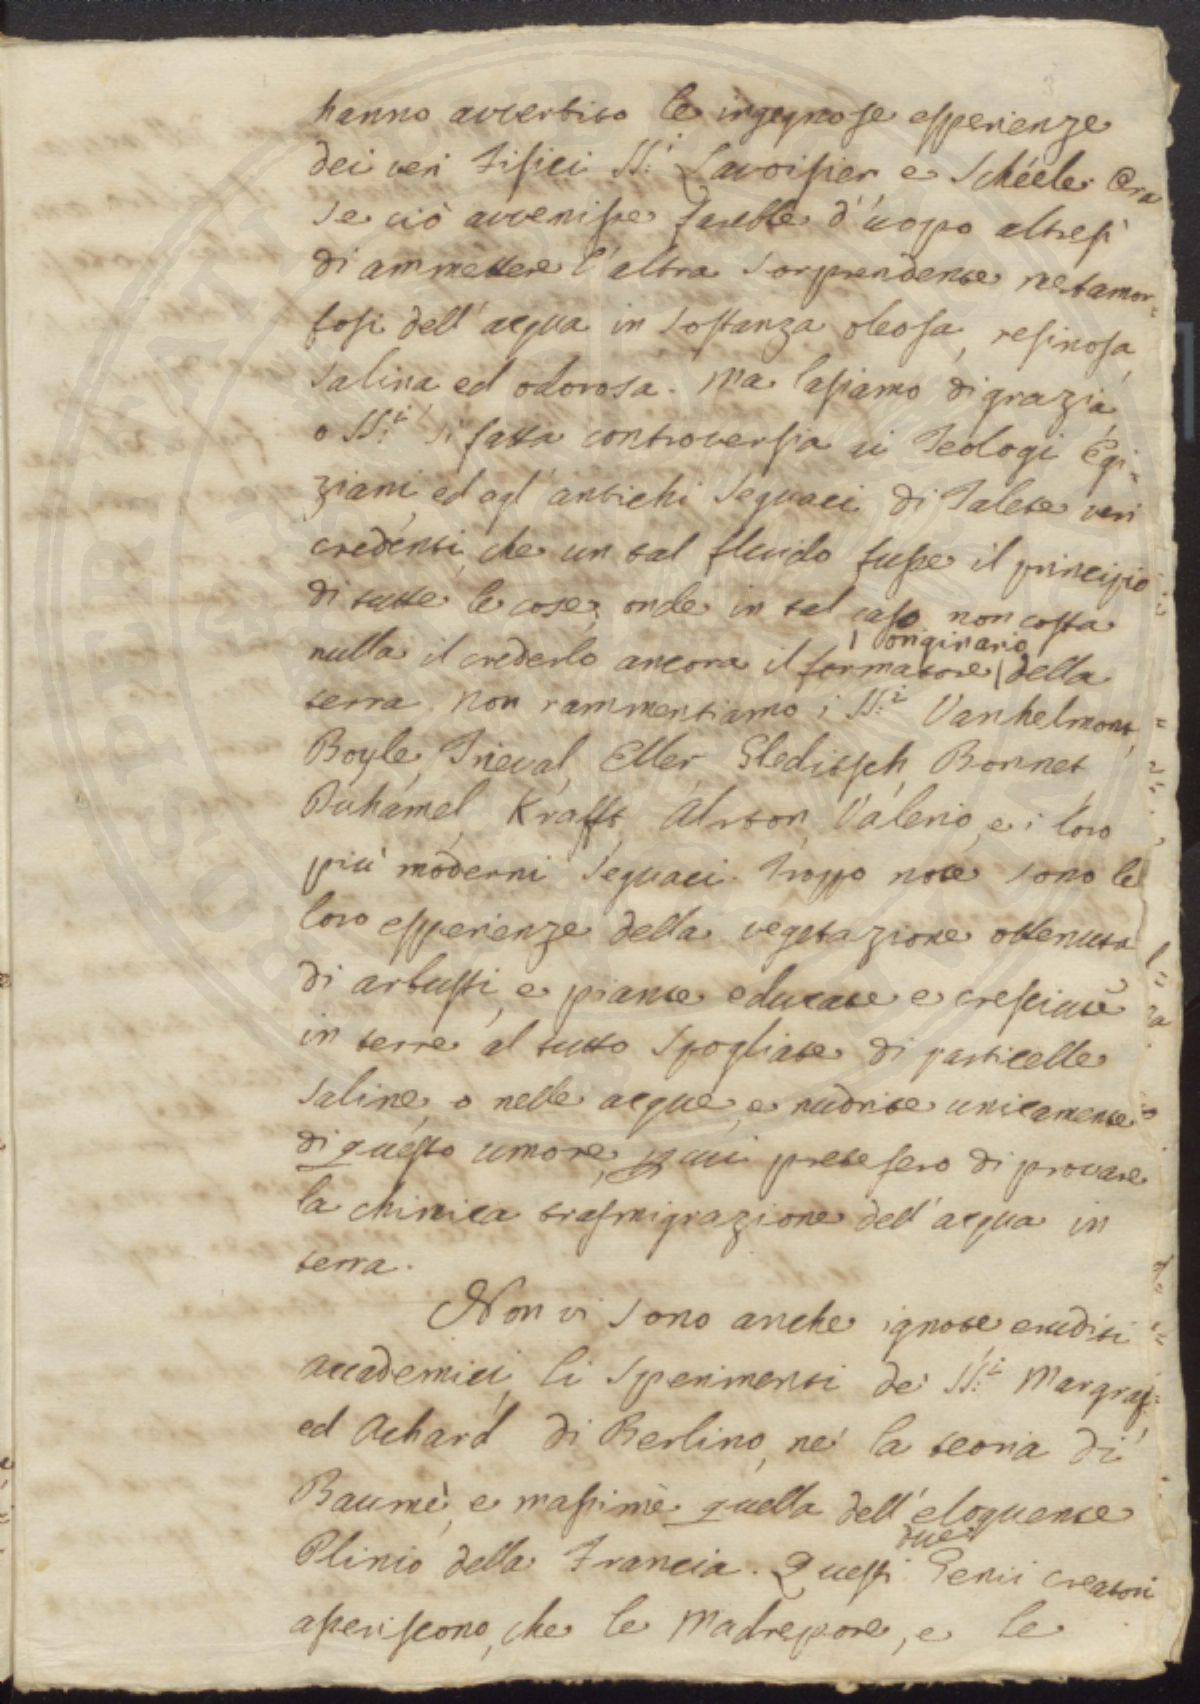 hanno avvertito le ingegnose esperienze
dei veri Fisici SS:i Lavoisier e Schéele. Ora
se ciò avvenisse sarebbe d'uopo altresì
di ammettere l'altra sorprendente metamor-
fosi dell'acqua in sostanza oleosa, resinosa,
salina ed odorosa. Ma lasiamo di grazia
o SS:i sì fatta controversia ai Teologi Egi-
ziani, ed agl'antichi seguaci di Talete veri
credenti, che un tal fluido fusse il principio
di tutte le cose; onde in tal caso non costa
originario
nulla il crederlo ancora il formatore della
terra. Non rammentiamo i SS:i Vanhelmont,
Boyle, Trieval, Eller, Gleditsch, Bonnet
Duhamel, Krafft, Alston, Valerio, e i loro
più moderni seguaci. Troppo note sono le
loro esperienze della vegetazione ottenuta
di arbusti, e piante educate e cresciute
in terre al tutto spogliate di particelle
saline, o nelle acque, e nudrite unicamente
di questo umore, cui pretesero di provare
la chimica trasmigrazione dell'acqua in
terra.
Non vi sono anche ignote eruditi
accademici, li sperimenti de' SS:i Margraf
ed Achard di Berlino, nè la teoria di
Baumè, e massime quella dell'eloquente
due
Plinio della Francia. Questi Genii creatori
asseriscono, che le Madrepore, e le